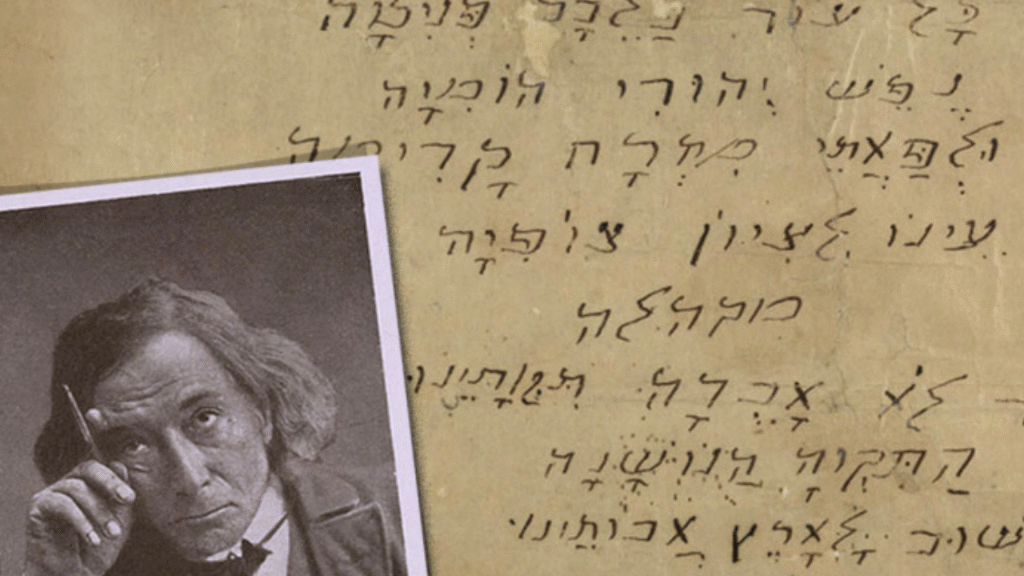 כָּל עוֹד בַּלֵּבָב פְּנִימָה
נֶפֶשׁ יְהוּדִי הוֹמִיָּה
וּלְפַאֲתֵי מִזְרָח קָדִימָה
עֵינוֹ לְצִיּוֹן צוֹפִיָּה
מקהלה
לֹא אָבְדָה תִּקְוָתֵינוּ
הַתִּקְוָה הַנּוֹשָׁנָה
שוּב לְאֶרֶץ אֲבוֹתֵינוּ